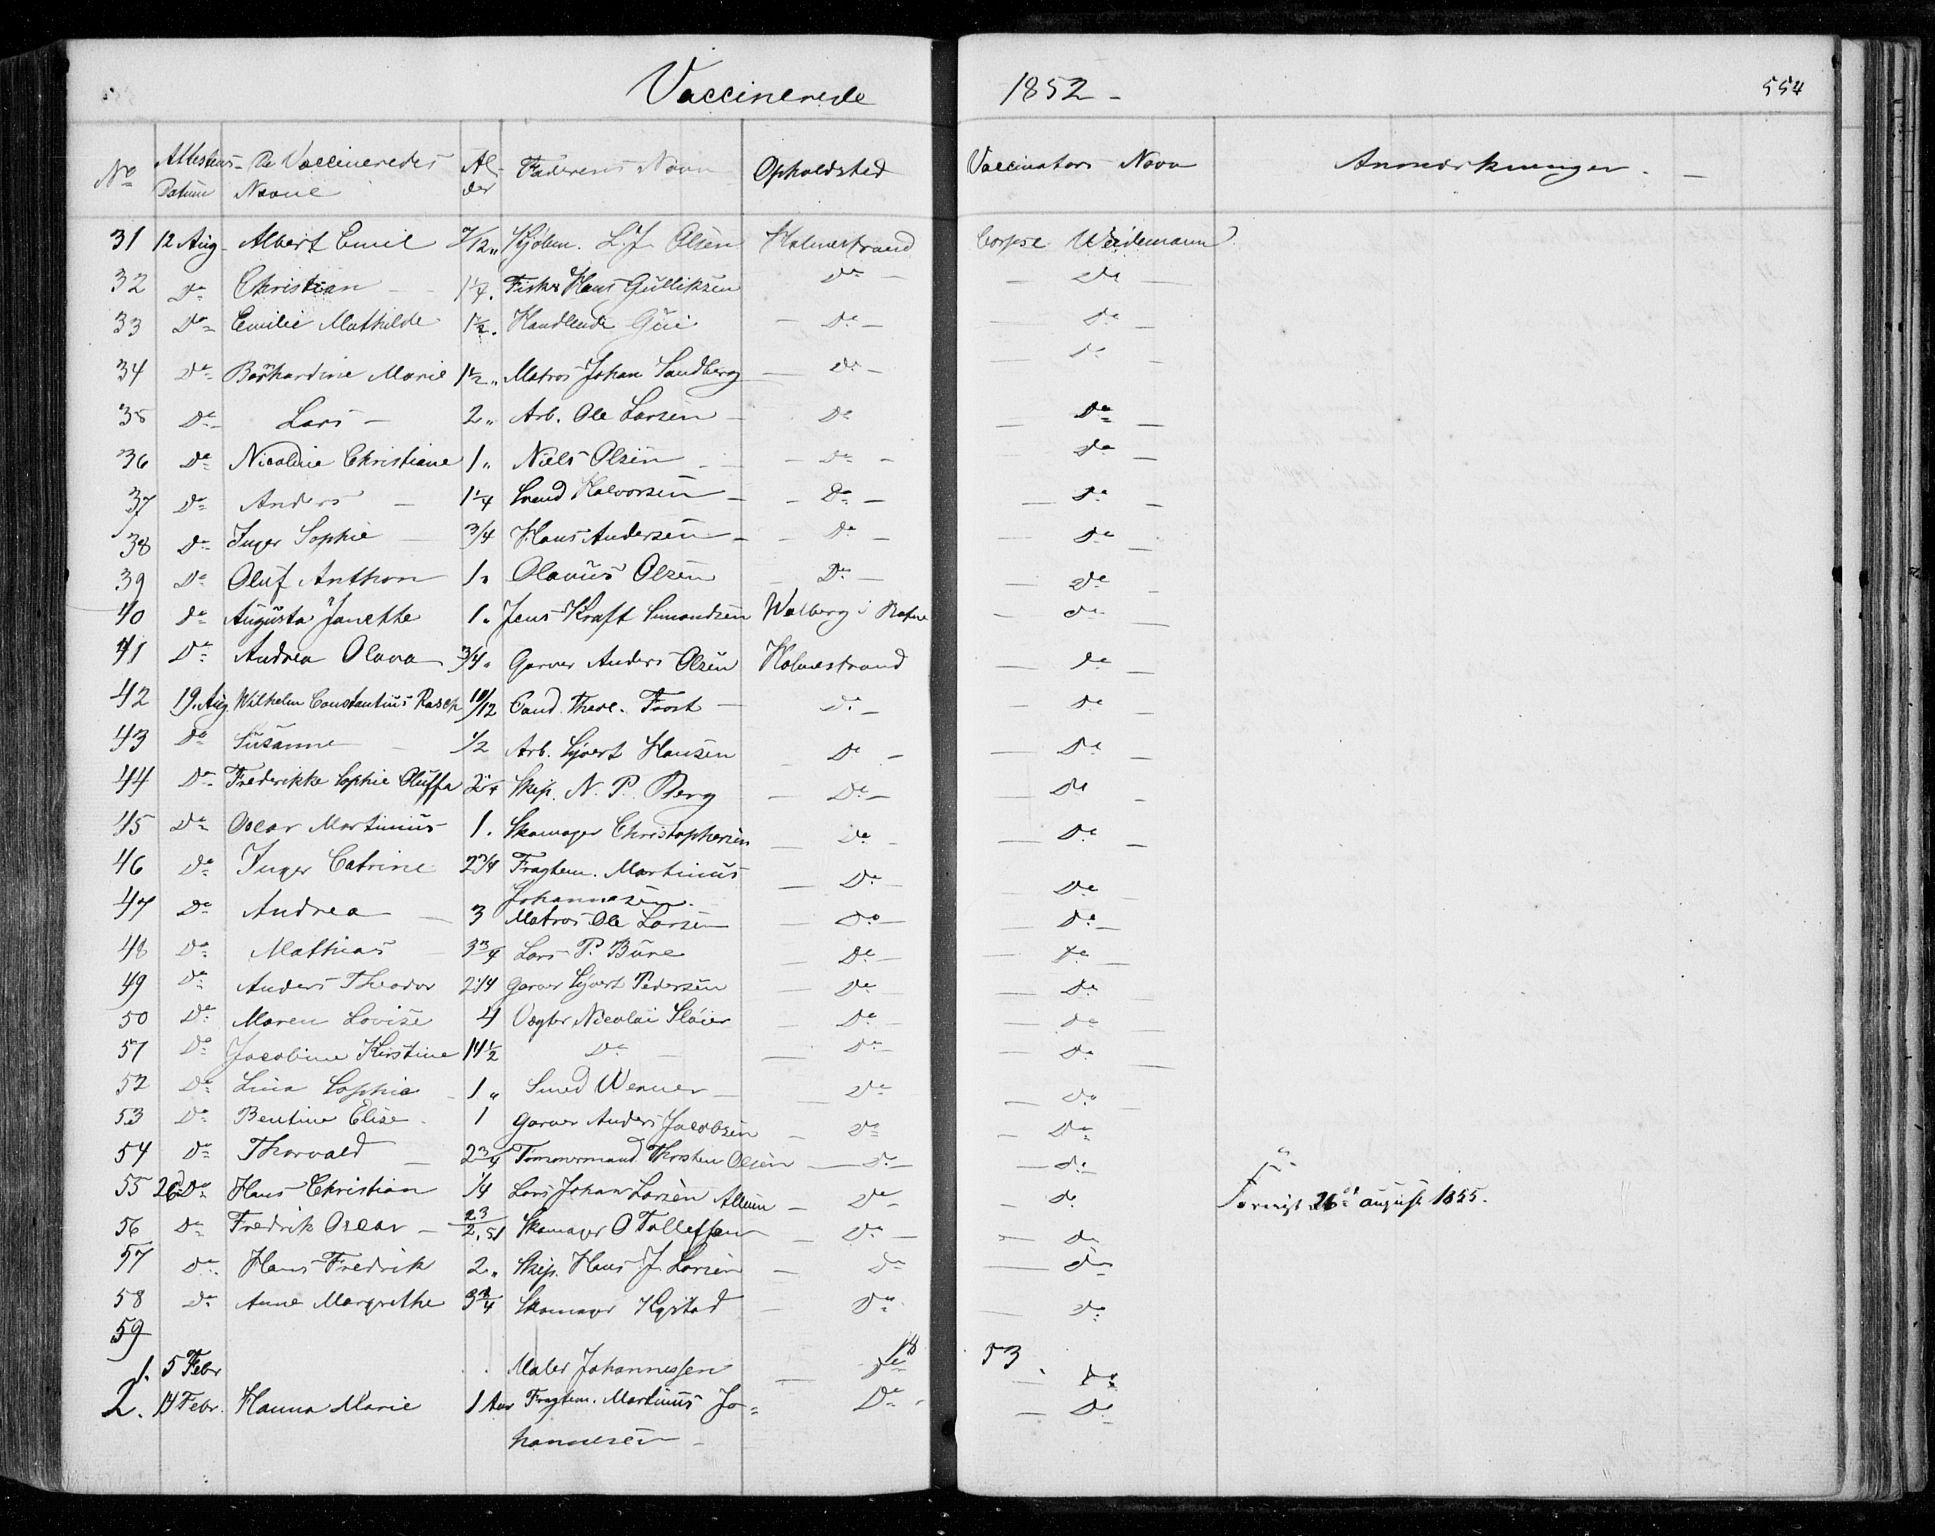 Vaccinerede 1852 - 554
No Attestens Datum De Vaccineredes Navne Alder Faderens Navn Opholdsted Vaccinators Navn Anmærkninger. -
31 12 Aug. Albert Emil 7/12 " Kjøbm. L. J. Olsen Holmestrand Corpsl. Weidemann
32 Do Christian - 1 1/4. Fisker Hans Gulliksen Do - Do -
33 Do Emilie Mathilde 1 1/2. Handlende Gúi - Do - - Do -
34 Do Bernhardine Marie 1 1/2 " Matros Johan Sandberg - Do - - Do -
35 Do Lars - 2 " Arb. Ole Larsen - Do - Do -
36 Do Nicoline Christiane 1 " Niels Olsen - - Do - - Do -
37 Do Anders - 1 1/4 Svend Halvorsen - - Do - - Do -
38 Do Inger Sophie - 3/4 Hans Andersen - - Do - - Do -
39 Do Oluf Anthon 1 " Olavus Olsen - Do - - Do -
40 Do Augusta Janette 1 " Jens Kraft Simondsen Walberg i Botne - Do -
41 Do Andrea Olava 3/4 " Garver Anders Olsen Holmestrand - Do -
42 19. Aug. Wilhelm Constantius Rasch 10/12 Cand. Theol. Faost - Do - - Do -
43 Do Susanne - 1/2 Arb. Syvert Hansen - Do - - Do -
44 Do Frederikke Sophie Oluffa 2 1/4 Skip. N. P. Berg - Do - - Do -
45 Do Oscar Martinius 1. Skomager Christophersen - Do - - Do -
46 Do Inger Catrine 2 3/4 Fragtem. Martinus Johannesen. - Do - - Do -
47 Do Andrea - 3 Matros Ole Larsen - Do - - Do -
48 Do Mathias - 3 3/4 Lars P. Bure - Do - - Do -
49 Do Anders Theodor 2 1/4 Garver Syvert Pedersen - Do - - Do -
50 Do Maren Lovise 4 Vægter Nicolai Sløier - Do - - Do -
51 Do Jacobine Kirstine 14 1/2 Do - - Do - - Do -
52 Do Lina Sophie - 1 " Smed Werner - - Do - - Do -
53 Do Bentine Elise - 1 Garver Anders Jacobsen - Do - Do -
54 Do Thorvald - 2 3/4 Tømmermand Thorsten Olsen - Do - - Do -
55 26 Do Hans Christian 1/4 Lars Johan Larsen Allum - Do - - Do Fornyet 26de august 1855.
56 Do Fredrik Oscar - 23/2.51 Skomager O Tollefsen - Do - - Do
57 Do Hans Fredrik 2 " Skip. Hans J. Larsen - Do - Do
58 Do Anne Margrethe 3 1/4 Skomager Kystad - Do - Do
59
18 53
1. 5 Febr Maler Johannessen - Do - Do
2. 14 Febr. Hanna Marie 1 Aar Fragtem. Martinus Jo=
hannesen - Do - - Do